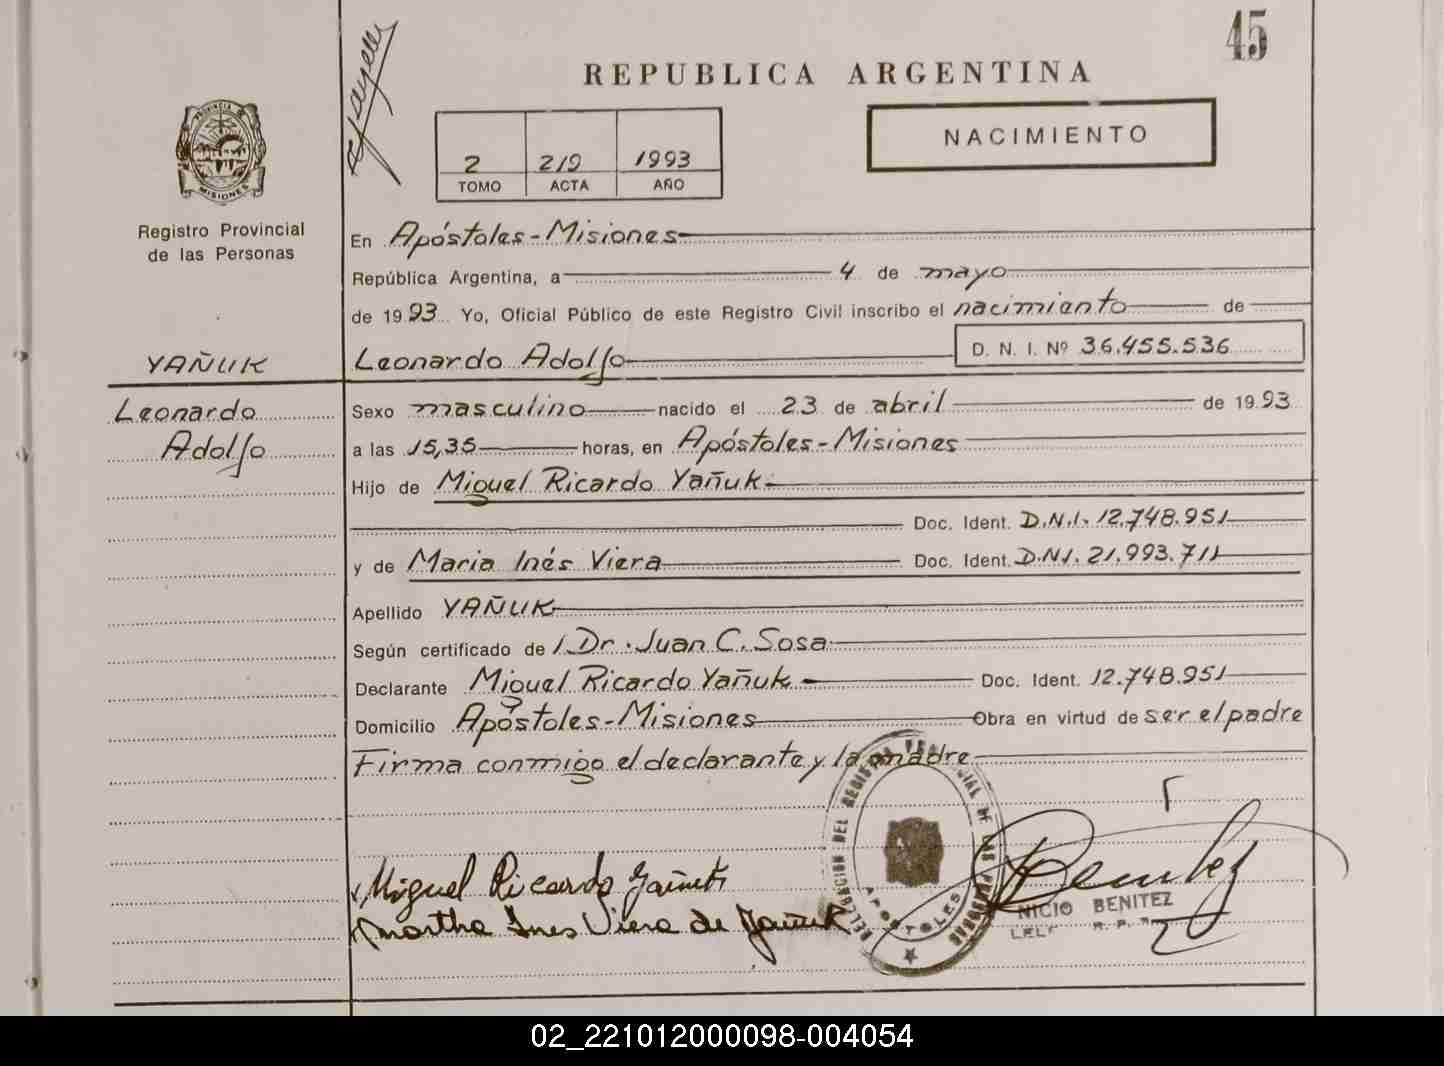 45
REPUBLICA ARGENTINA
NACIMIENTO
2 219 1993
TOMO ACTA AÑO
PROVINCIA DE
MISIONES
Registro Provincial
de las Personas
YAÑUK
Leonardo
Adolfo
En Apóstoles-Misiones
República Argentina, a 4 de mayo
de 1993 Yo, Oficial Público de este Registro Civil inscribo el nacimiento de
Leonardo Adolfo D. N. I. Nº 36.455.536
Sexo masculino nacido el 23 de abril de 1993
a las 15,35 horas, en Apóstoles-Misiones
Hijo de Miguel Ricardo Yañuk
Doc. Ident. D.N.I. 12.748.951
y de Maria Inés Viera Doc. Ident. D.N.I. 21.993.711
Apellido YAÑUK
Según certificado de / Dr. Juan C. Sosa
Declarante Miguel Ricardo Yañuk Doc. Ident. 12.748.951
Domicilio Apóstoles-Misiones Obra en virtud de ser el padre
Firma conmigo el declarante y la madre
Miguel Ricardo Yañuk
Martha Ines Viera de Yañuk
DEL REGISTRO PROVINCIAL DE LAS PERSONAS
APOSTOLES
Benitez
NICIO BENITEZ
02_221012000098-004054